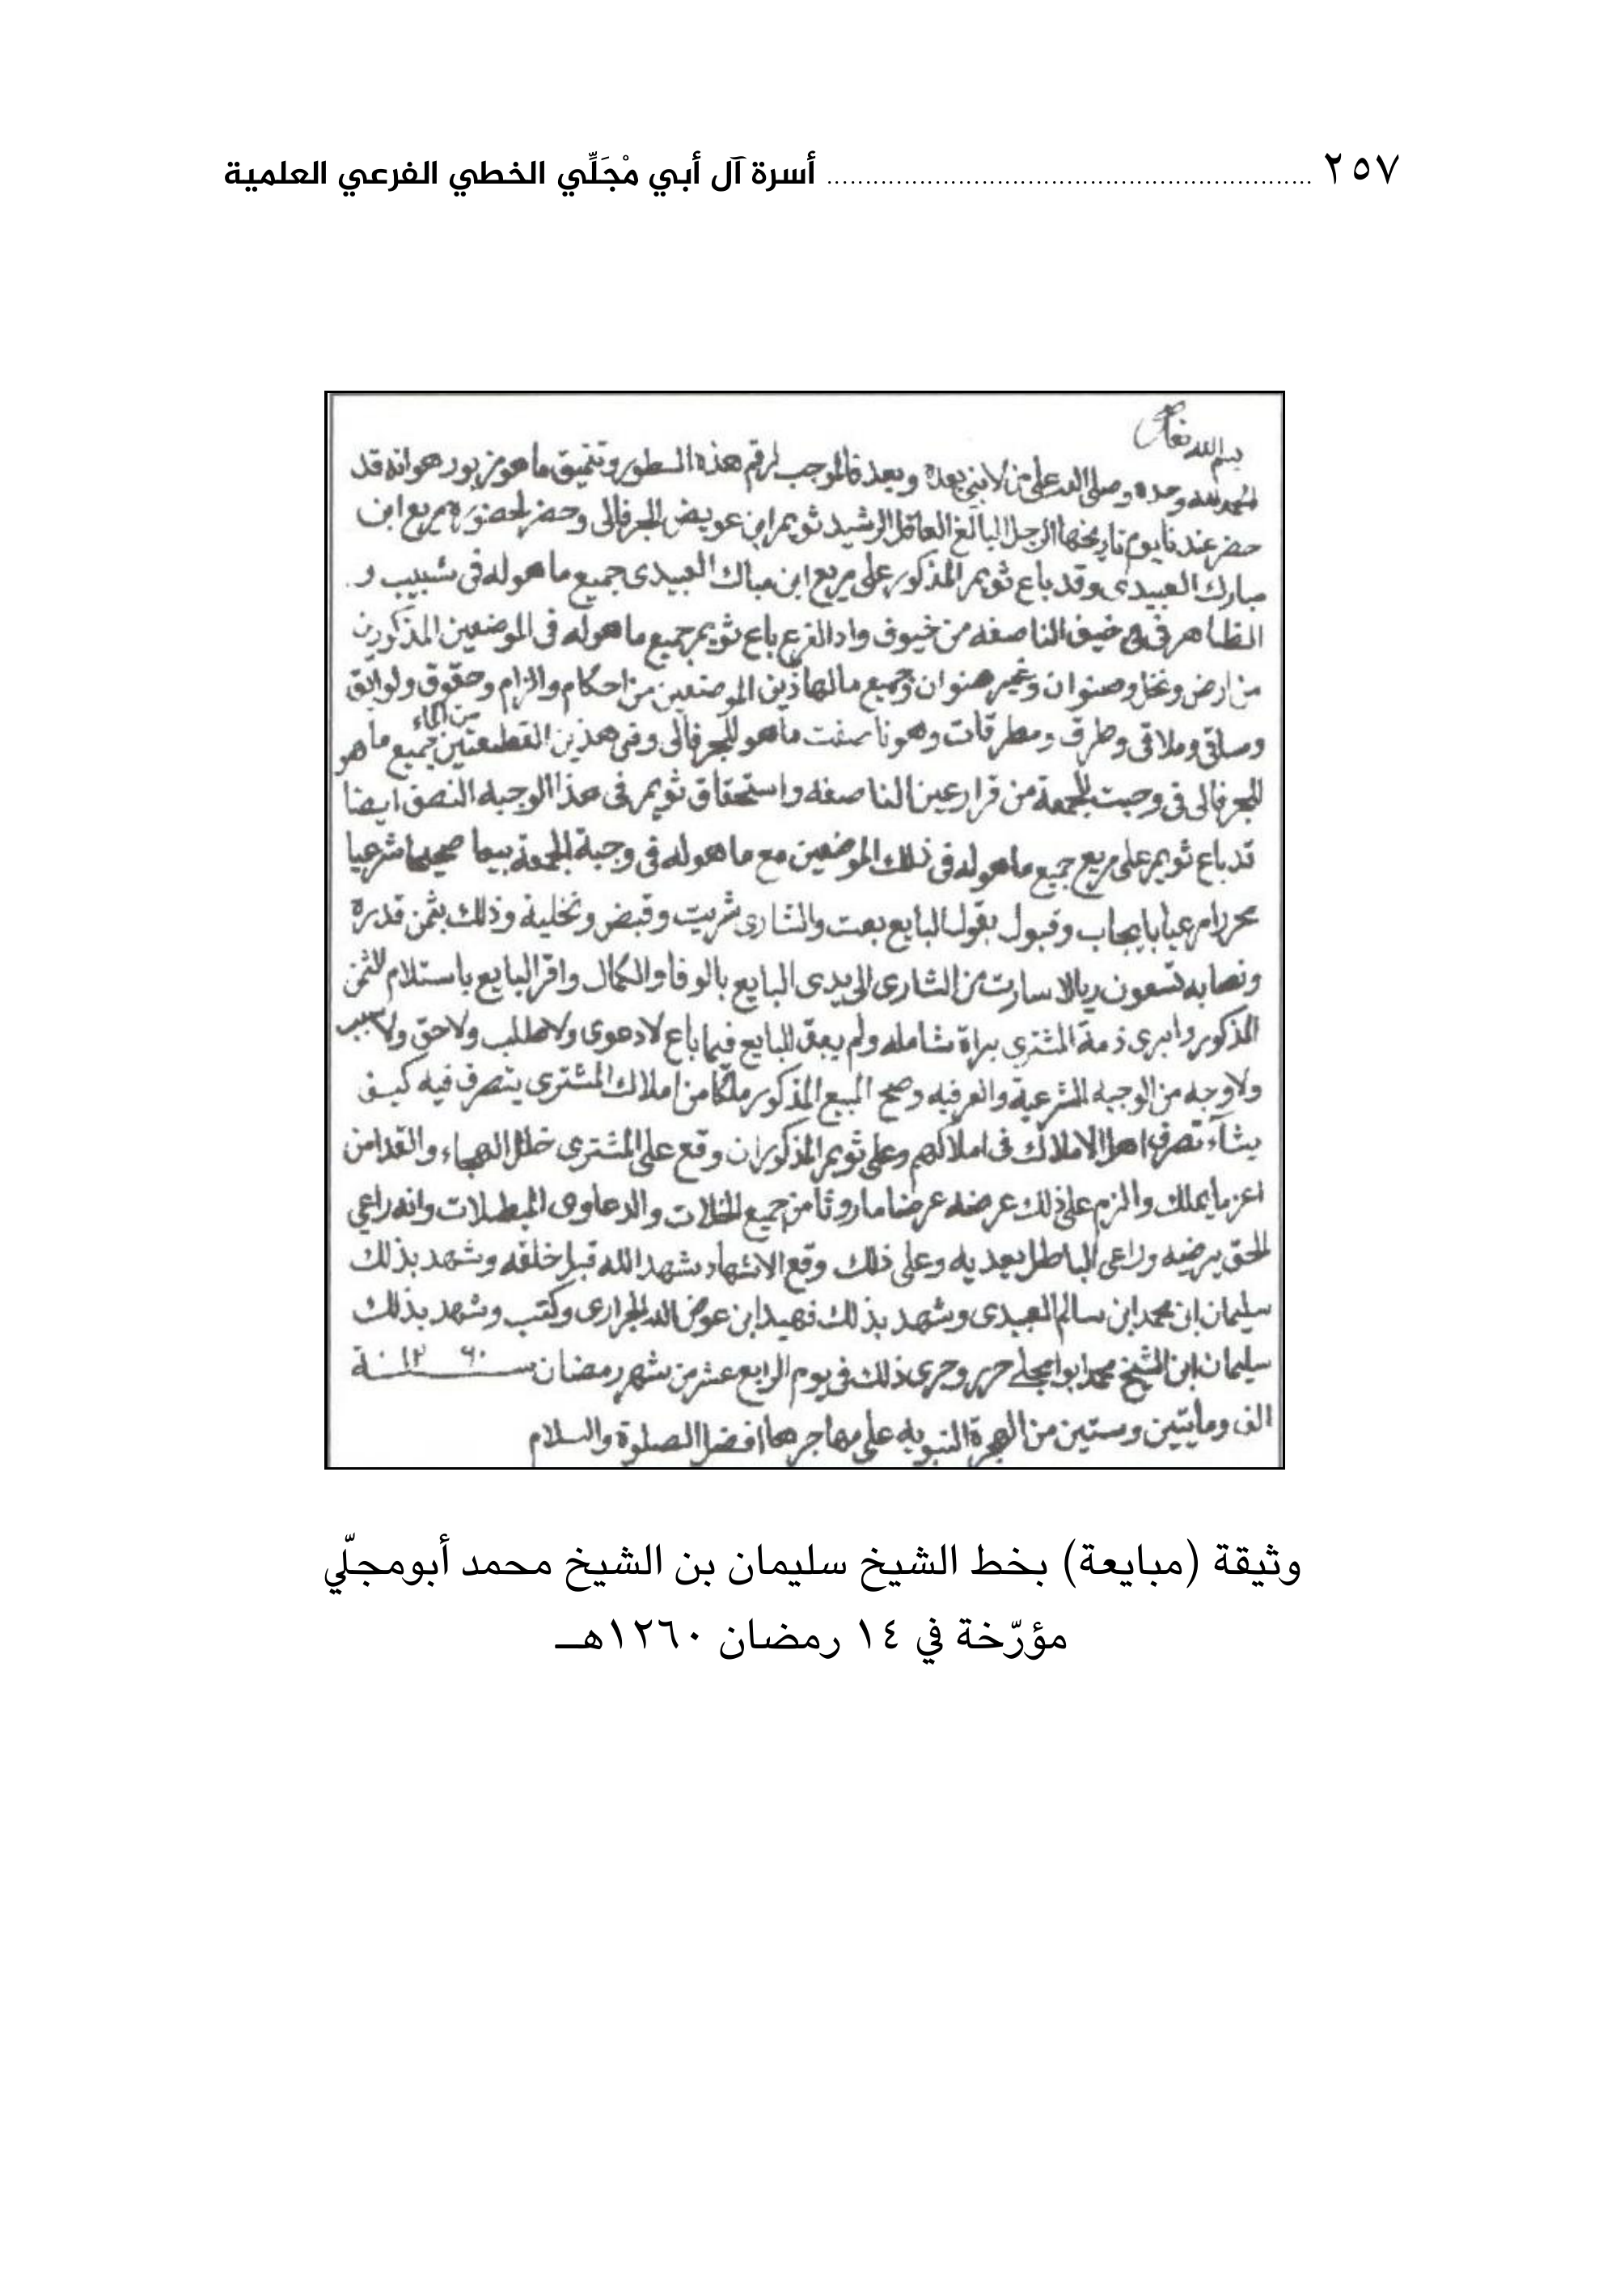 ٢٥٧ ............................................................... أسرة آل أبي مْجَلِّي الخطي الفرعي العلمية
بسم الله تعالى
الحمد لله وحده وصلى الله على من لا نبي بعده وبعد فالموجب لرقم هذه السطور وتنميق ما هو مزبور هو انه قد
حضر عندنا يوم تاريخها الرجل البالغ العاقل الرشيد ثويمر ابن عويض الجرفالى وحضر لحضوره مريع ابن
مبارك العبيدى وقد باع ثويمر المذكور على مريع ابن مبارك العبيدى جميع ما هو له فى شبيب
الظاهر فى خيف الناصفه من خيوف واد الفرع باع ثويمر جميع ما هو له فى الموضعين المذكورين
من ارض ونخل وصنوان وغير صنوان وجميع مالهاذين الموضعين من احكام والزام وحقوق ولوايق
ومساقى وملاقى وطرق ومطرقات وهو ناصفت ما هو للجرفالى وفى هذين القطيعتين من الماء جميع ما هو
للجرفالى فى وجبت الجمعة من قرار عين الناصفه واستحقاق ثويمر فى هذا الوجبه النصف ايضا
قد باع ثويمر على مريع جميع ما هو له فى ذلك الموضعين مع ما هو له فى وجبة الجمعة بيعا صحيحا شرعيا
محررا مرعيا بايجاب وقبول بقول البايع بعت والشارى شريت وقبض وتخلية وذلك بثمن قدره
ونصابه تسعون ريالا سارت من الشارى الى يدى البايع بالوفا والكمال واقر البايع باستلام الثمن
المذكور وابرى ذمة المشتري براة شامله ولم يبق للبايع فيما باع لا دعوى ولا طلب ولا حق ولا سبب
ولا وجه من الوجبه الشرعية والعرفيه وصح المبيع المذكور ملكا من املاك المشترى يتصرف فيه كيف
يشآء تصرف اهل الاملاك فى املاكهم وعلى ثويمر المذكور ان وقع على المشترى خلل والفدا من
اعز ما يملك والزم على ذلك عرضه عرضا ماروثا من جميع الخللات والدعاوى المبطلات وانه راعي
الحق يرضيه وراعى الباطل يعديه وعلى ذلك وقع الاشهاد شهد الله قبل خلقه وشهد بذلك
سليمان ابن محمد ابن سالم العبيدى وشهد بذلك فهيد ابن عوض الله الجرارى وكتب وشهد بذلك
سليمان ابن الشيخ محمد ابوامجلي حرر وجرى ذلك فى يوم الرابع عشر من شهر رمضان سنة ١٢٦٠
الف ومايتين وستين من الهجرة النبويه على مهاجرها افضل الصلوة والسلام
وثيقة (مبايعة) بخط الشيخ سليمان بن الشيخ محمد أبومجلّي
مؤرّخة في ١٤ رمضان ١٢٦٠هــ